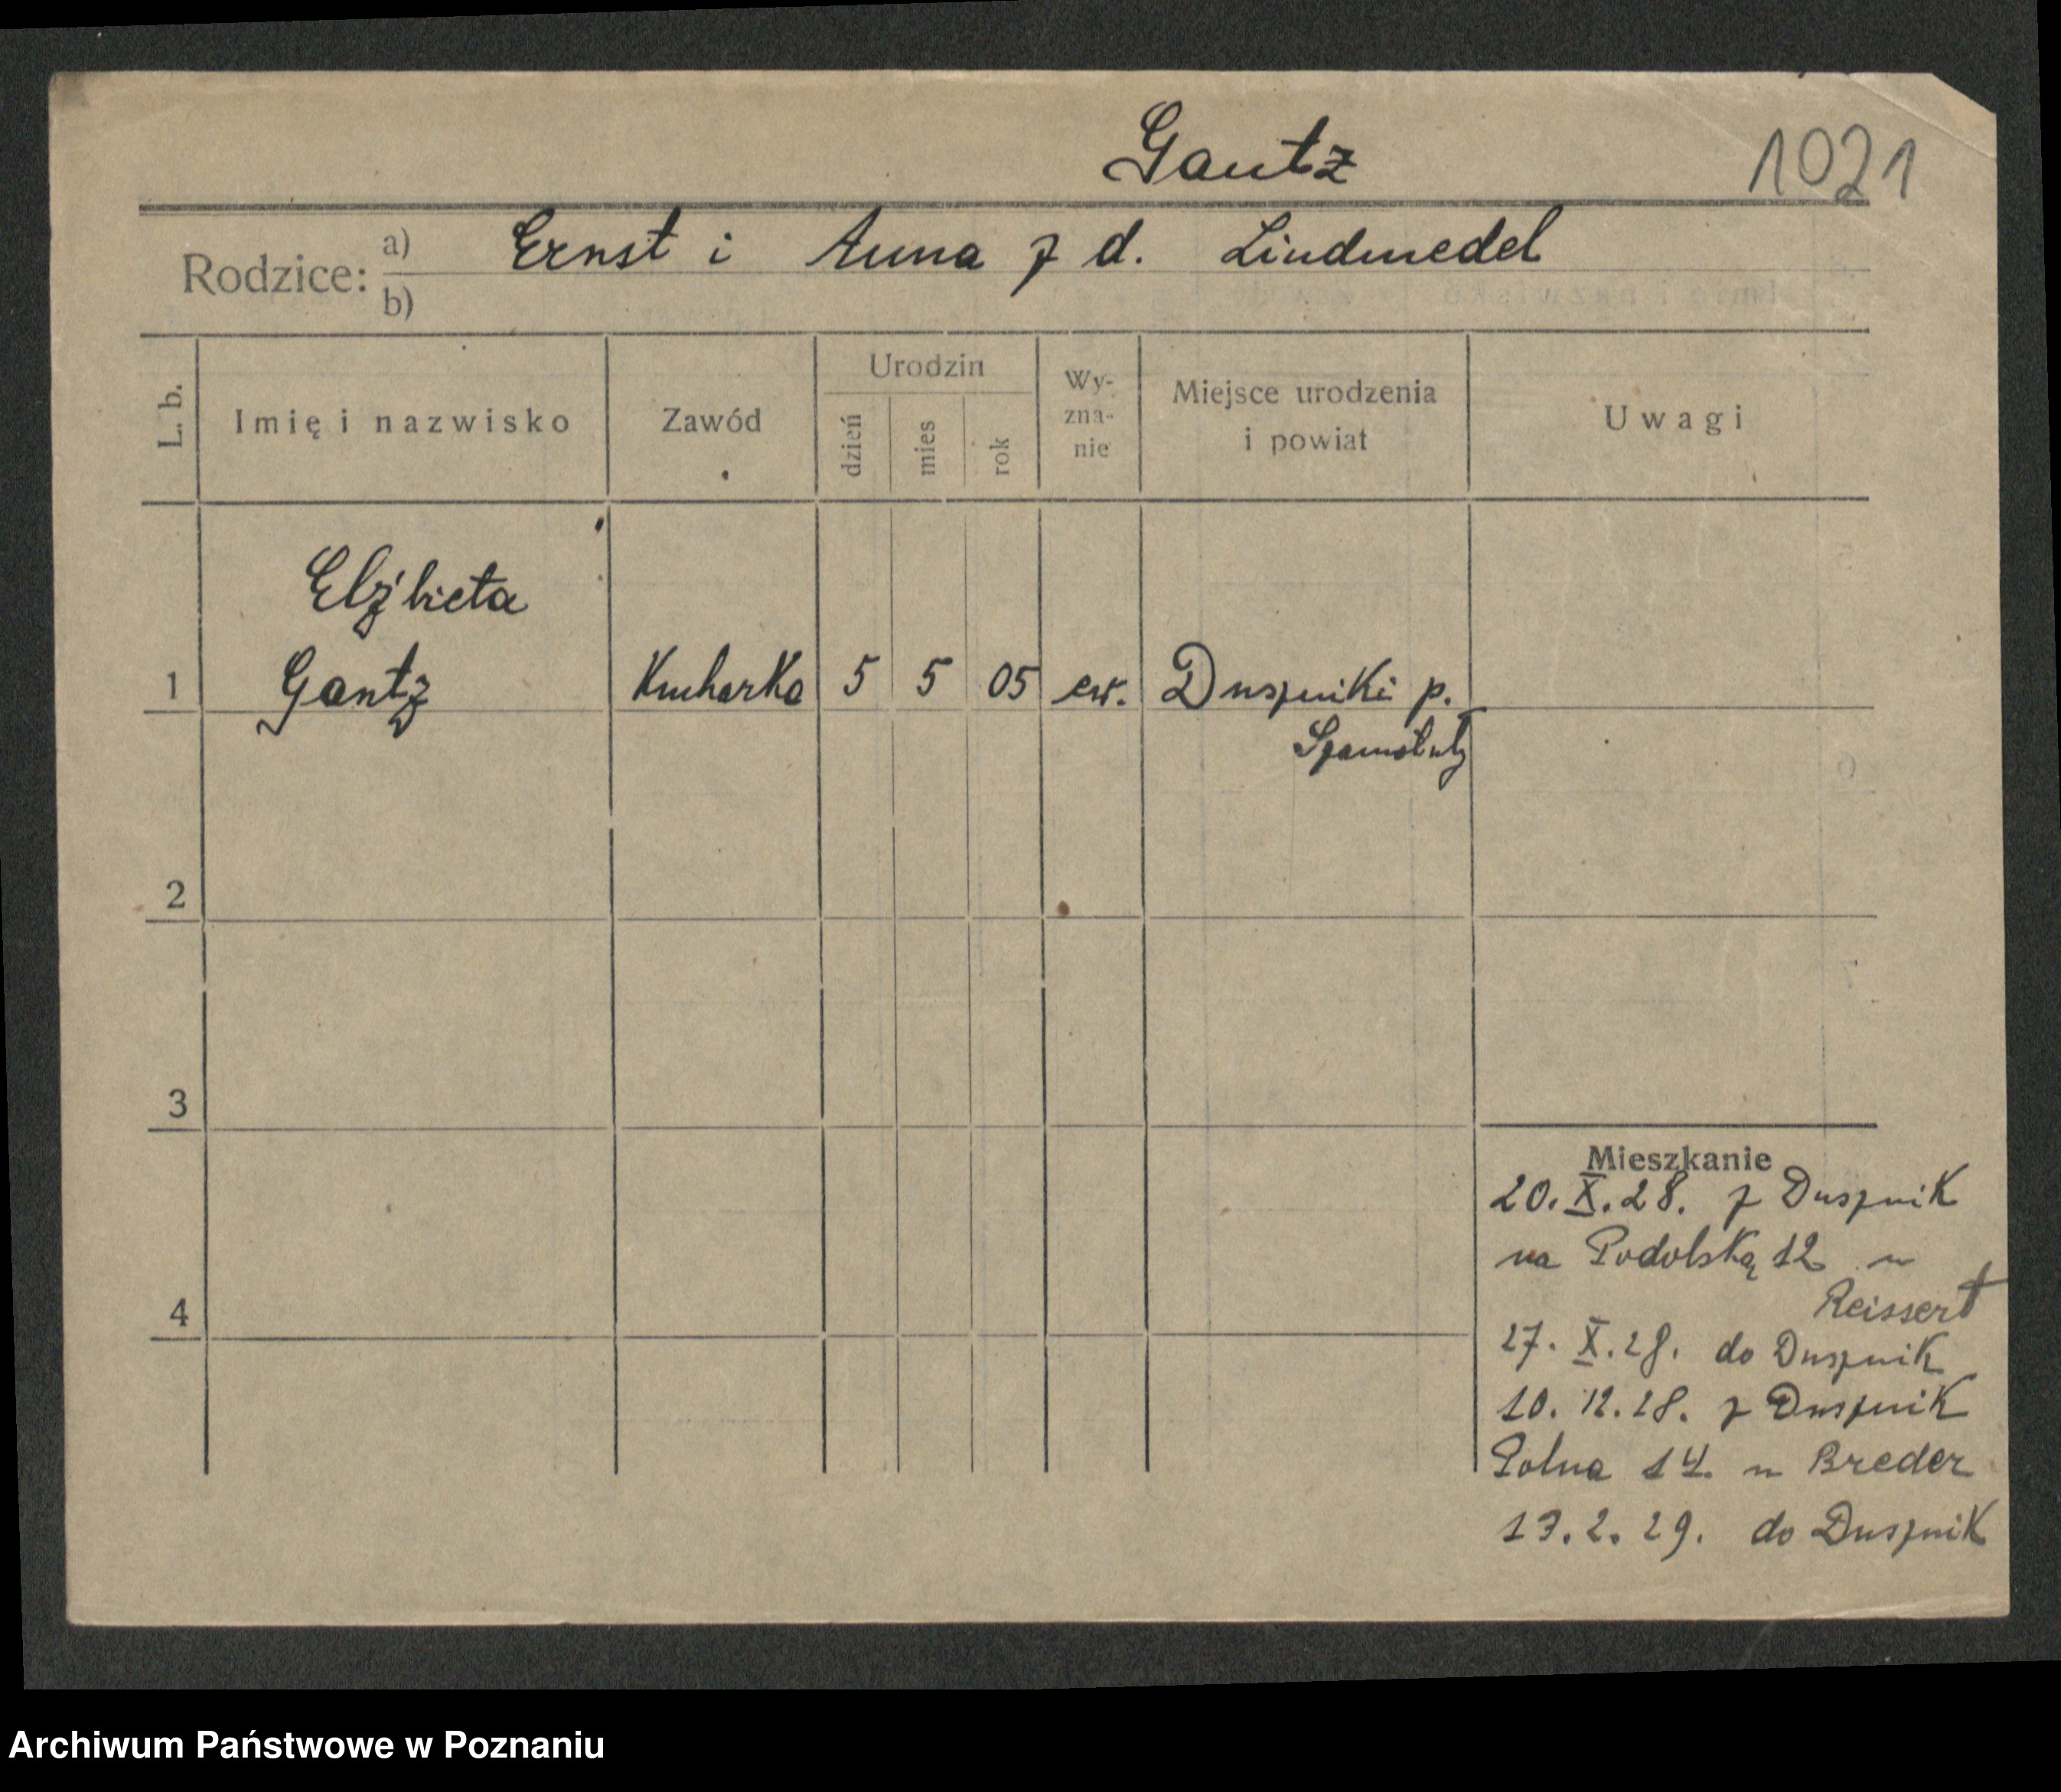 Gantz
1021
Rodzice: a) Ernst i Anna z d. Lindmedel
b)
L. b.
Imię i nazwisko
Zawód
Urodzin
dzień
mies
rok
Wy-
zna-
nie
Miejsce urodzenia
i powiat
Uwagi
Elżbieta
1 Gantz Kucharka 5 5 05 ew. Duszniki p.
Szamotuły
2
3
4
Mieszkanie
20. X. 28. z Dusznik
na Podolską 12 u
Reissert
27. X. 28. do Dusznik
10. 12. 28. z Dusznik
Polna 14. u Breder
13. 2. 29. do Dusznik
Archiwum Państwowe w Poznaniu